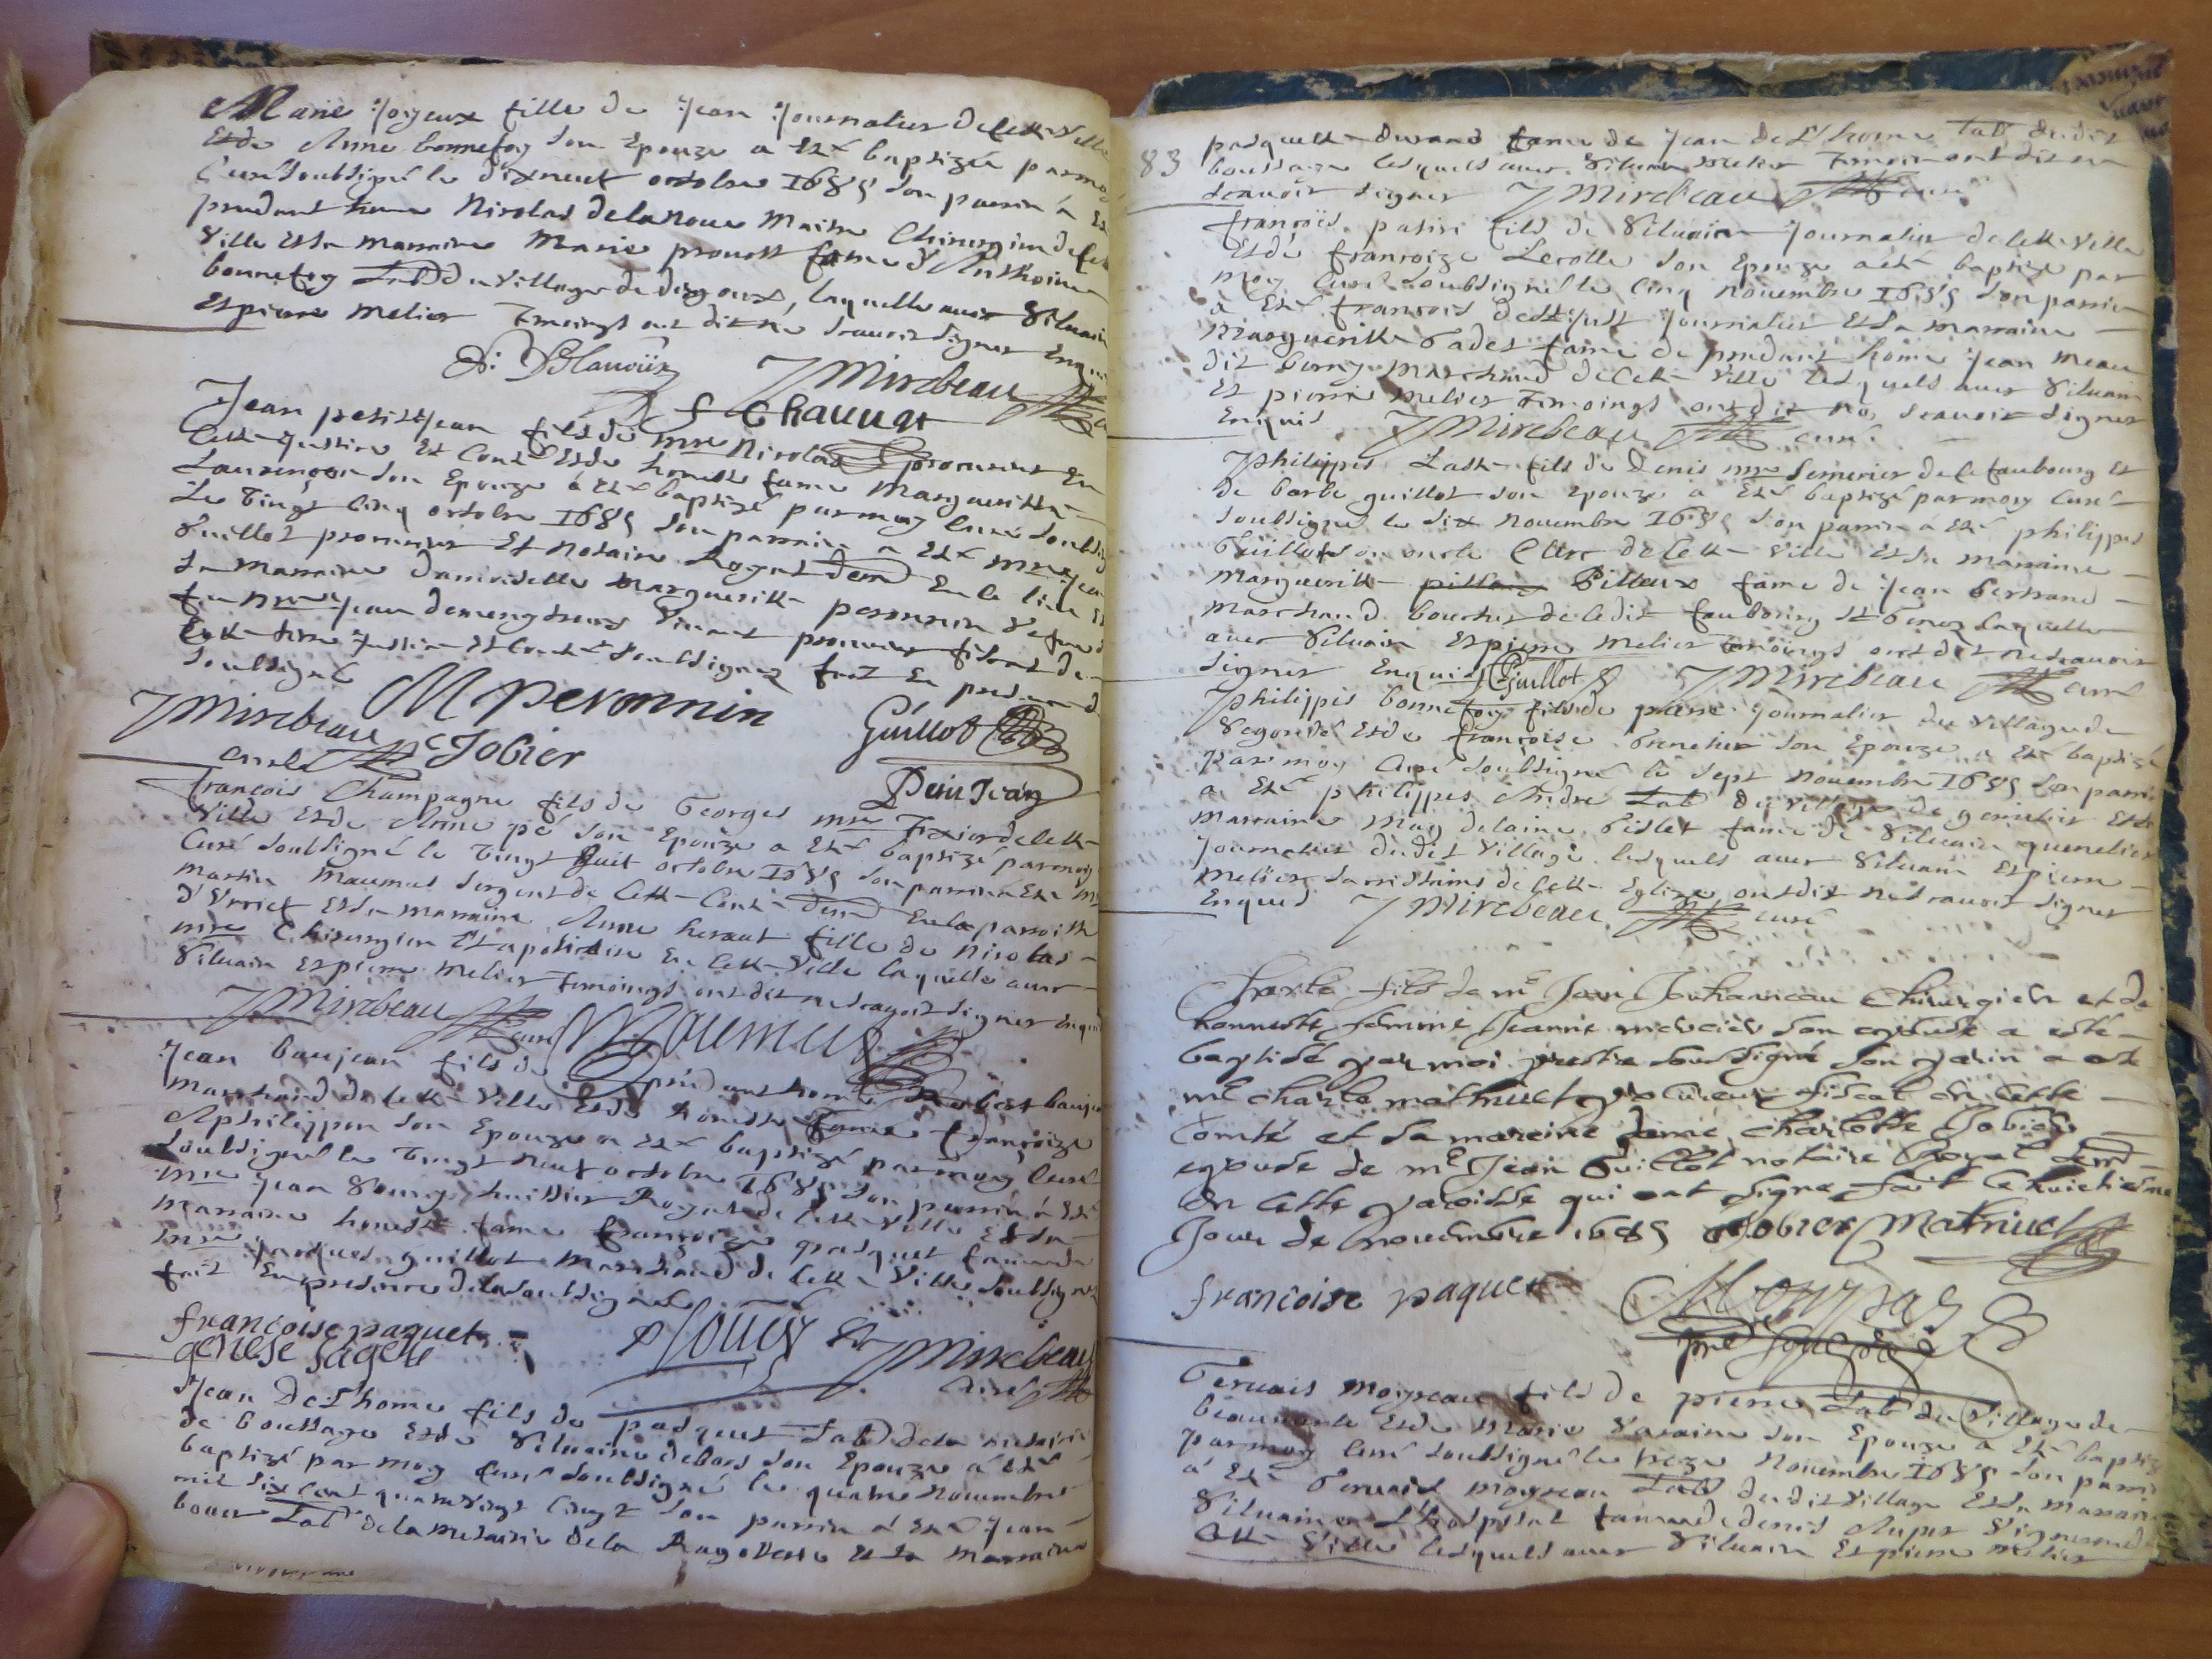 Marie Joyeux fille de Jean Journalier de cette ville
Et de Anne bonnefoy son Epouze a Esté baptizée par moy
Curé soubsigné le dixneuf octobre 1685 son parrin a Esté
prudent home Nicolas delanoue Maitre Chirurgien de cette
ville Et sa marraine Marie prouost fame d'Anthoine
bonnefoy Lab du village de digoux, laquelle auec Siluain
Et pierre melier Temoings ont dit ne scauoir signer Enquis
JMirebeau
f Chauuot
Jean petitJean fils de mre Nicolas procureur En
cette Justice Et Conté Et de honeste fame Margueritte
son Epouze a Esté baptizé par moy Curé soubsigné
Le vingt cinq octobre 1685 son parrain a Esté mre Jean
Guillot procureur Et notaire Royal dem En la
sa marraine damoiselle Marguerite perronnin Vefue de
feu mre Jean Viuant procureur fiscal de
cette Justice Et Conté soubsignez fait En presence
soubsigné
M peronnin
JMirebeau
Jobier
Guillot
curé
PetitJean
francois Champagne fils de Georges mre de cette
ville Et de Anne pé son Epouze a Esté baptizé par moy
Curé soubsigné le vingt huit octobre 1685 son parrin a Esté
Martin Maumus sergent de cette Conté dem En la parroisse
d' Et sa marraine Anne heraut fille de Nicolas
mre Chirurgien Et apoticaire En cette ville laquelle auec
Siluain Et pierre melier Temoings ont dit ne scauoir signer Enquis
JMirebeau curé
Maumus
Jean baujean fils de prudent home baujean
Marchand de cette ville Et de honeste fame francoize
Aphilippon son Epouze a Esté baptizé par moy Curé
soubsigné le vingt neuf octobre 1685 son parrin a Esté
mre Jean huissier Royal de cette ville Et sa
marraine honeste fame francoize pasquet fame de
mre Jacques guillot Marchand de cette ville soubsignez
fait En presence des soubsignez
francoise paquet
JMirebeau
curé
Jean De L'home fils de pasquet Lab de la metairie
de boussage Et de Siluaine debord son Epouze a Esté
baptizé par moy Curé soubsigné le quatre nouembre
mil six cent quatrevingt cinq son parrin a Esté Jean
Lab de la metairie de la Et sa marraine
83
pasquette durand fame de Jean de L'home Lab dudit
boussage lesquels auec Siluain melier Temoin ont dit ne
scauoir signer JMirebeau curé
francois fils de Siluain Journalier de cette ville
Et de francoize Lerolle son Epouze a Esté baptizé par
moy Curé soubsigné le Cinq nouembre 1685 son parrin
a Esté francois Journalier Et sa marraine
Marguerite Cadet fame de prudent home Jean meau
dit berry Marchand de cette ville lesquels auec Siluain
Et pierre melier Temoings ont dit ne scauoir signer
Enquis JMirebeau curé
Philippes fils de Denis mre serrurier de ce faubourg Et
de barbe guillot son Epouze a Esté baptizé par moy Curé
soubsigné le six nouembre 1685 son parrin a Esté philippes
Guillot son oncle Clerc de cette ville Et sa marraine
Marguerite Pilleux fame de Jean bertrand
Marchand boucher de cedit faubourg laquelle
auec Siluain Et pierre melier Temoings ont dit ne scauoir
signer Enquis PGuillot JMirebeau curé
Philippes bonnefoy fils de pierre Journalier du village de
Et de francoise son Epouze a Esté baptizé
par moy Curé soubsigné le sept nouembre 1685 son parrin
a Esté philippes Andre Lab du village de Et sa
marraine Magdelaine fame de Siluain quenelier
Journalier dudit village lesquels auec Siluain Et pierre
melier sacristains de cette Eglise ont dit ne scauoir signer
Enquis JMirebeau curé
Charle fils de mr Jean Jouhanneau Chirurgien et de
honneste femme Jeanne mercier son epouse a esté
baptisé par moi prestre soussigné son parin a esté
mr charle mathiuet procureur fiscal en cette
comté et sa mareine dame charlotte Jobier
epouse de mr Jean Guillot notaire Royal dem
en cette paroisse qui ont signe fait le huictiesme
Jour de nouembre 1685 Jobier Mathiuet
francoise paquet
Geruais moyreau fils de pierre Lab du village de
Et de Marie son Epouze a Esté baptizé
par moy Curé soubsigné le treze nouembre 1685 son parrin
a Esté Geruais moyreau Lab dudit village Et sa marraine
Siluaine L'hospital fame de denis Vigneron de
cette ville lesquels auec Siluain Et pierre melier